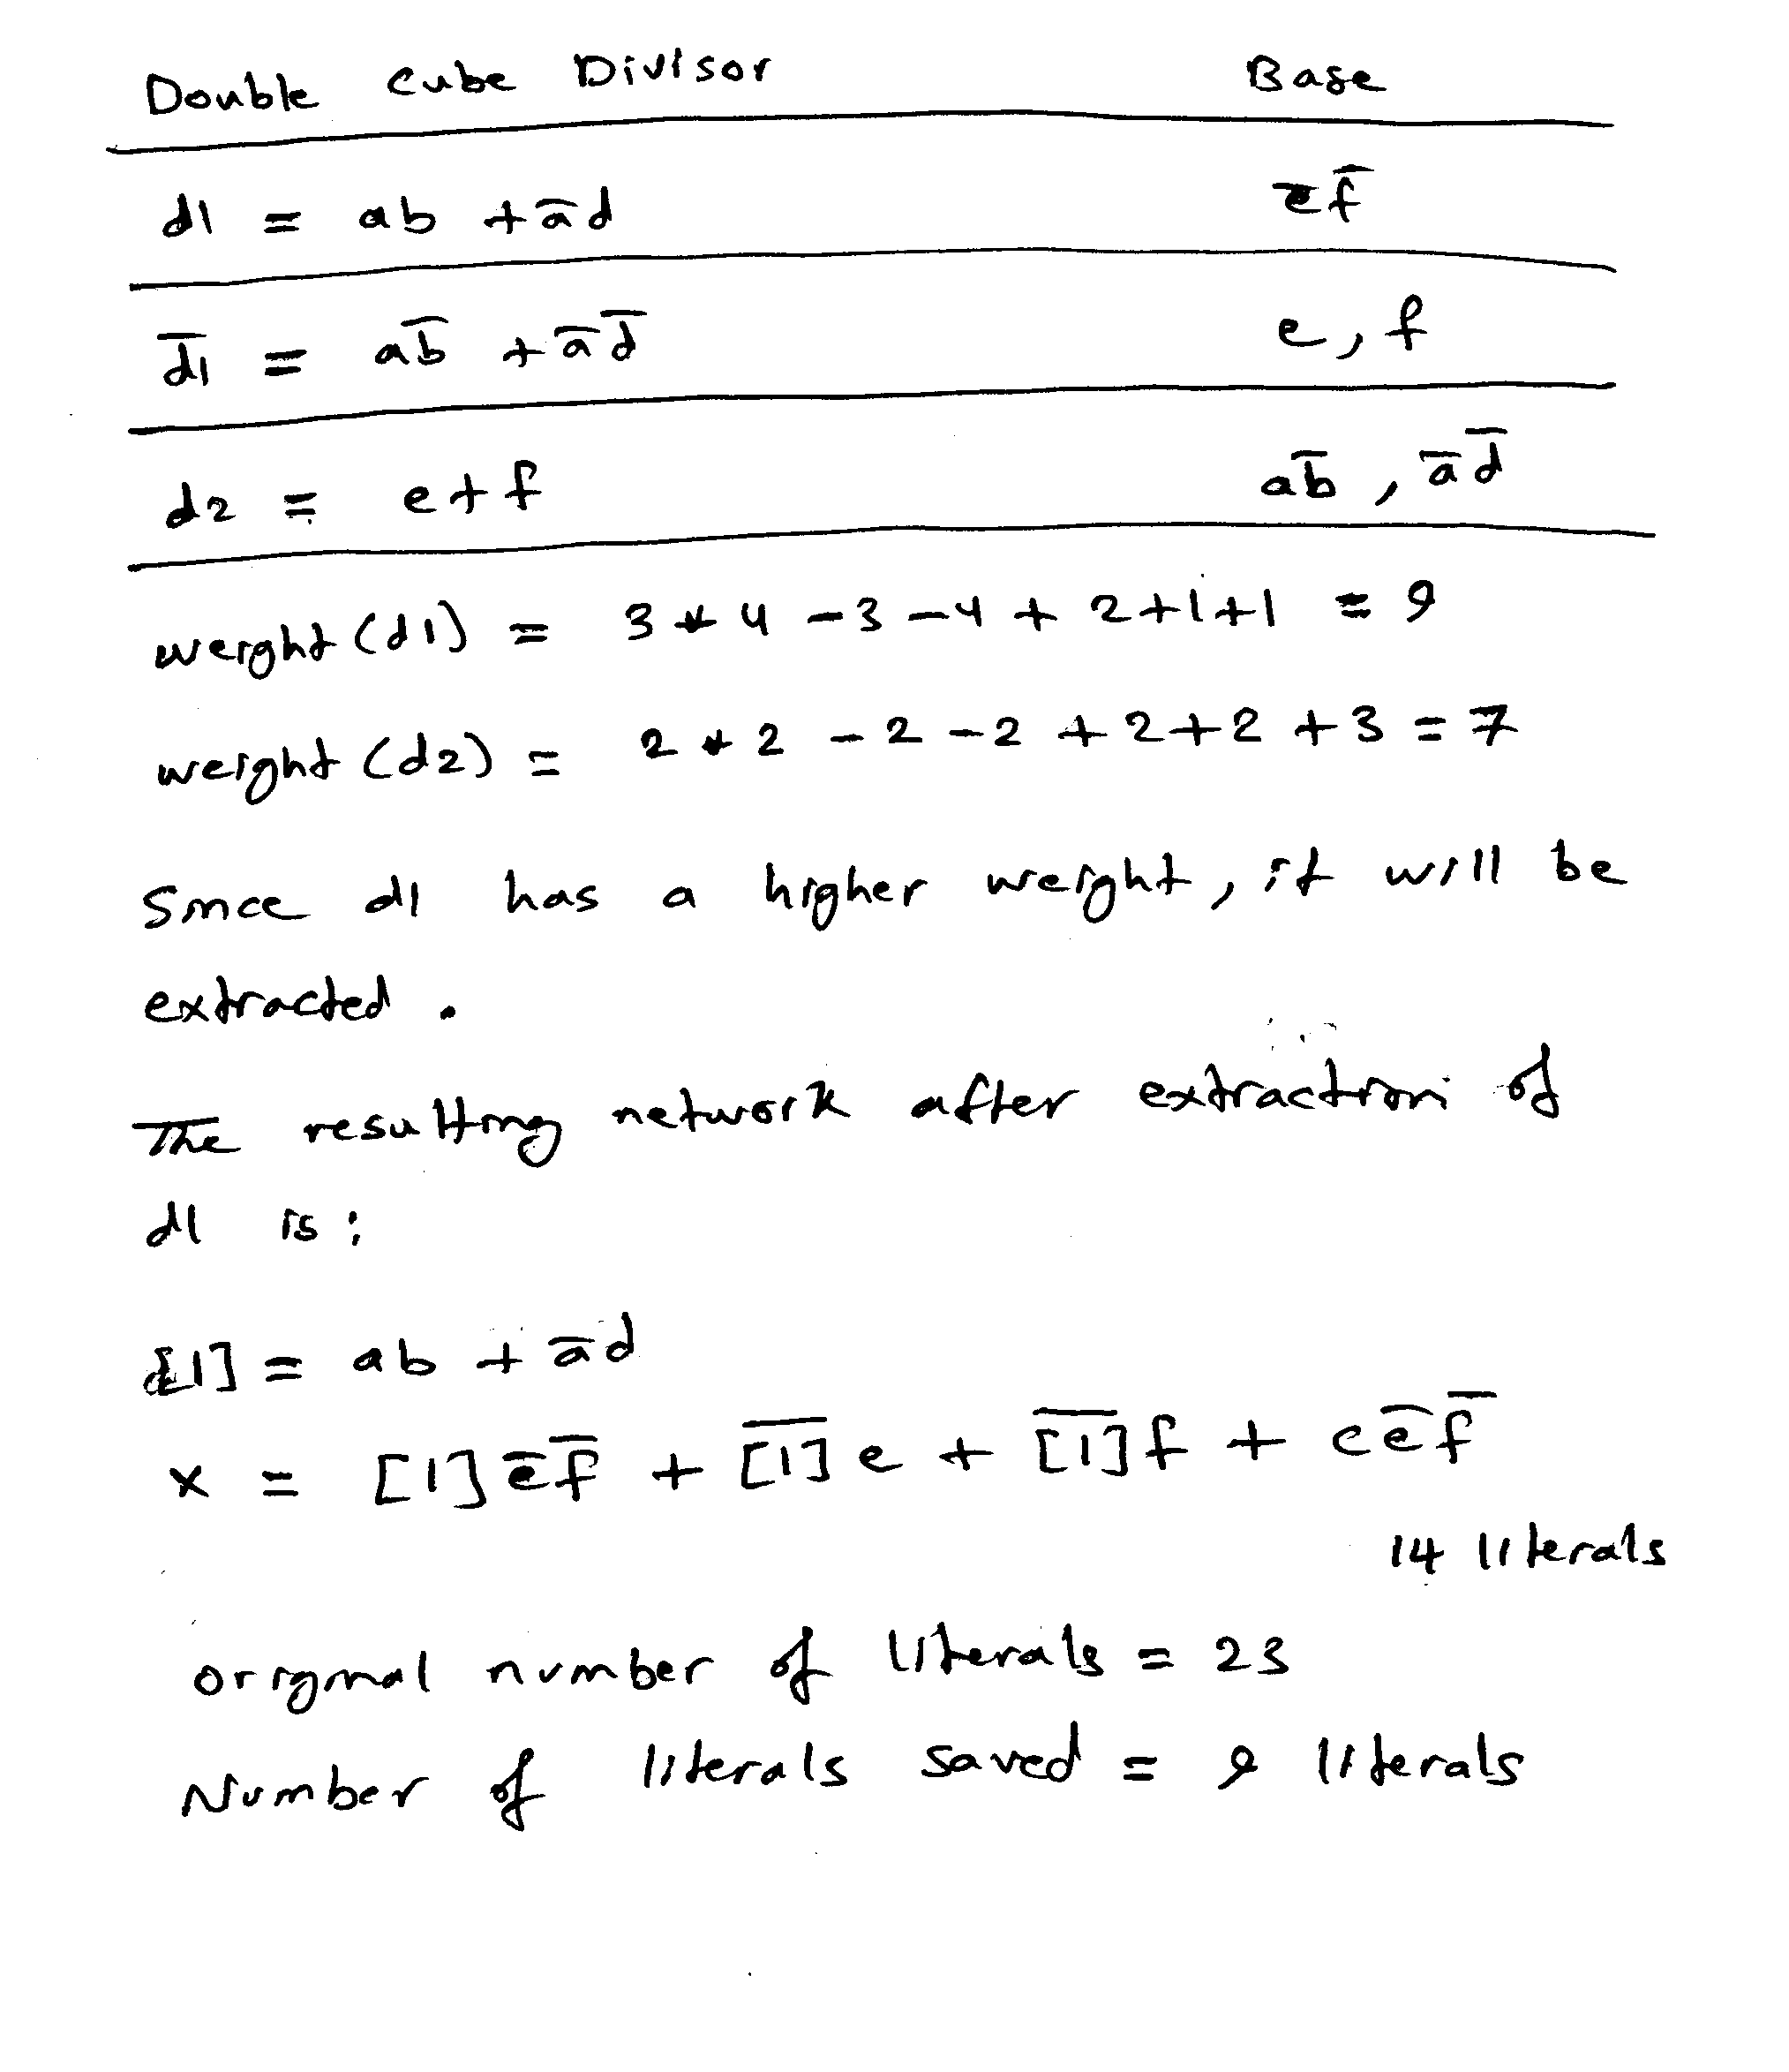 Double Cube Divisor Base
d1 = ab + a̅d e̅f̅
d̅1̅ = ab̅ + a̅d̅ e, f
d2 = e+f ab̅, a̅d̅
weight (d1) = 3*4 -3 -4 + 2+1+1 = 9
weight (d2) = 2*2 -2 -2 +2+2 +3 = 7
Since d1 has a higher weight, it will be
extracted.
The resulting network after extraction of
d1 is:
[1] = ab + a̅d
x = [1]e̅f̅ + [̅1̅]̅e + [̅1̅]̅f + ce̅f̅
14 literals
original number of literals = 23
Number of literals saved = 9 literals